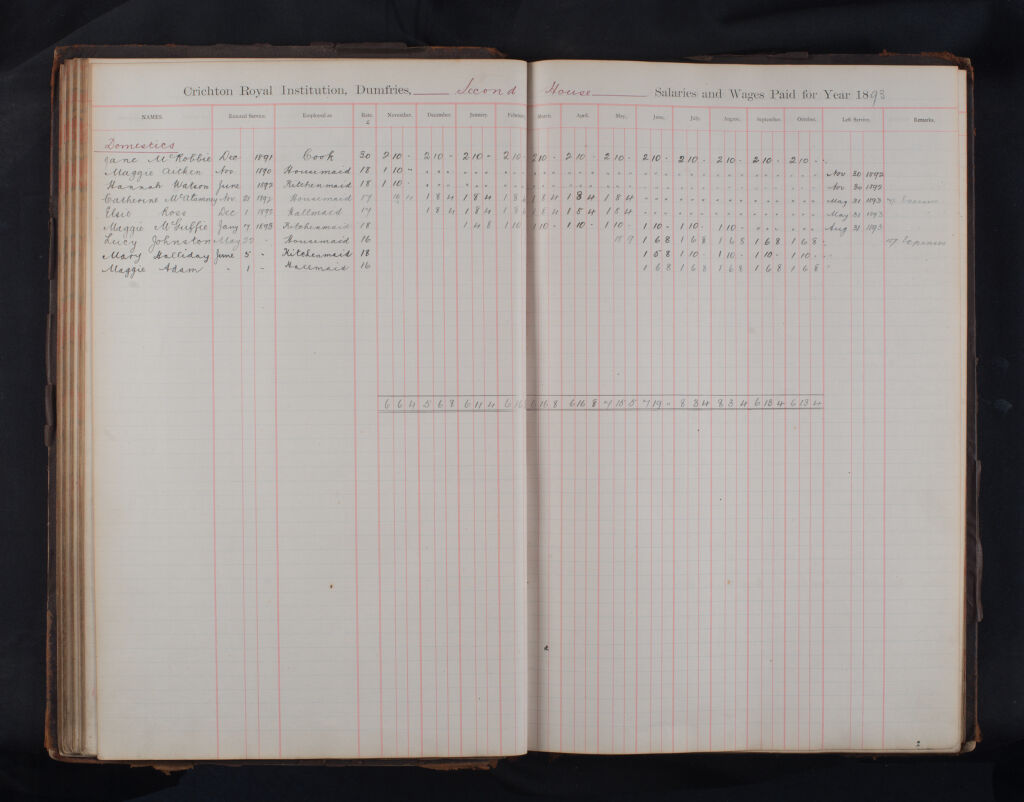 Crichton Royal Institution, Dumfries, Second House Salaries and Wages Paid for Year 1893
NAMES. Entered Service. Employed as Rate. £ November. December. January. February. March. April. May. June. July. August. September. October. Left Service. Remarks.
Domestics
Jane McRobbie Dec 1891 Cook 30 2 10 - 2 10 - 2 10 - 2 10 - 2 10 - 2 10 - 2 10 - 2 10 - 2 10 - 2 10 - 2 10 - 2 10 -
Maggie Aitken Nov. 1890 Housemaid 18 1 10 - Nov 30 1892
Hannah Watson June 1892 Kitchenmaid 18 1 10 - Nov 30 1892
Catherine Nov. 21 1892 Housemaid 17 1 8 4 1 8 4 1 8 4 1 8 4 1 8 4 1 8 4 May 31 1893
Elsie Ross Dec 1 1892 Hallmaid 17 1 8 4 1 8 4 1 8 4 1 8 4 1 8 4 1 8 4 May 31 1893
Maggie McGuffie Jany 7 1893 Kitchenmaid 18 1 4 8 1 10 1 10 - 1 10 - 1 10 - 1 10 - 1 10 - 1 10 - Aug 31 1893
Lucy Johnston May 22 - Housemaid 16 1 6 8 1 6 8 1 6 8 1 6 8 1 6 8
Mary Halliday June 5 - Kitchenmaid 18 1 5 8 1 10 - 1 10 - 1 10 - 1 10 -
Maggie Adam - 1 - Hallmaid 16 1 6 8 1 6 8 1 6 8 1 6 8 1 6 8
6 6 4 5 6 8 6 11 4 6 16 6 16 8 6 16 8 7 15 5 7 19 - 8 3 4 8 3 4 6 13 4 6 13 4